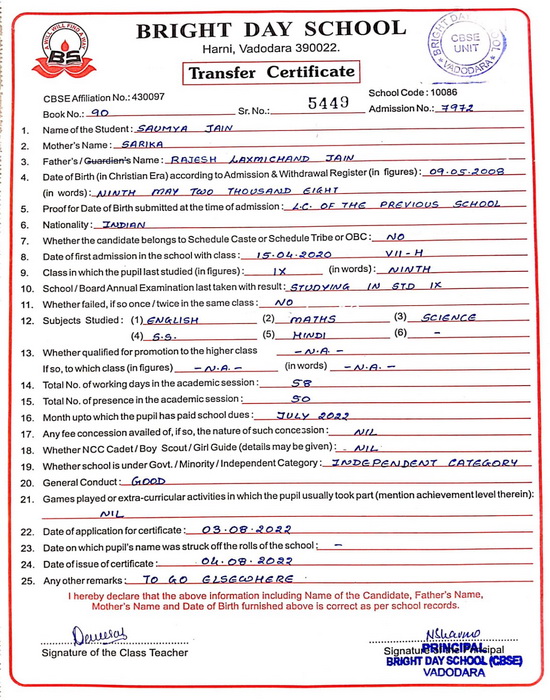 A WILL WILL FIND A WAY
BS
BRIGHT DAY SCHOOL
Harni, Vadodara 390022.
Transfer Certificate
BRIGHT DAY SCHOOL
CBSE
UNIT
VADODARA
CBSE Affiliation No.: 430097
School Code : 10086
Book No.: 90 Sr. No.: 5449 Admission No.: 7972
1. Name of the Student : SAUMYA JAIN
2. Mother's Name : SARIKA
3. Father's / Guardian's Name : RAJESH LAXMICHAND JAIN
4. Date of Birth (in Christian Era) according to Admission & Withdrawal Register (in figures) : 09.05.2008
(in words) : NINTH MAY TWO THOUSAND EIGHT
5. Proof for Date of Birth submitted at the time of admission : L.C. OF THE PREVIOUS SCHOOL
6. Nationality : INDIAN
7. Whether the candidate belongs to Schedule Caste or Schedule Tribe or OBC : NO
8. Date of first admission in the school with class : 15.04.2020 VII - H
9. Class in which the pupil last studied (in figures) : IX (in words) : NINTH
10. School / Board Annual Examination last taken with result : STUDYING IN STD IX
11. Whether failed, if so once / twice in the same class : NO
12. Subjects Studied : (1) ENGLISH (2) MATHS (3) SCIENCE
(4) S.S. (5) HINDI (6) -
13. Whether qualified for promotion to the higher class - N.A. -
If so, to which class (in figures) - N.A. - (in words) - N.A. -
14. Total No. of working days in the academic session : 58
15. Total No. of presence in the academic session : 50
16. Month upto which the pupil has paid school dues : JULY 2022
17. Any fee concession availed of, if so, the nature of such concession : NIL
18. Whether NCC Cadet / Boy Scout / Girl Guide (details may be given) : - NIL
19. Whether school is under Govt. / Minority / Independent Category : INDEPENDENT CATEGORY
20. General Conduct : GOOD
21. Games played or extra-curricular activities in which the pupil usually took part (mention achievement level therein) :
NIL
22. Date of application for certificate : 03.08.2022
23. Date on which pupil's name was struck off the rolls of the school : -
24. Date of issue of certificate : 04.08.2022
25. Any other remarks : TO GO ELSEWHERE
I hereby declare that the above information including Name of the Candidate, Father's Name,
Mother's Name and Date of Birth furnished above is correct as per school records.
Signature of the Class Teacher
Signature of the Principal
PRINCIPAL
BRIGHT DAY SCHOOL (CBSE)
VADODARA